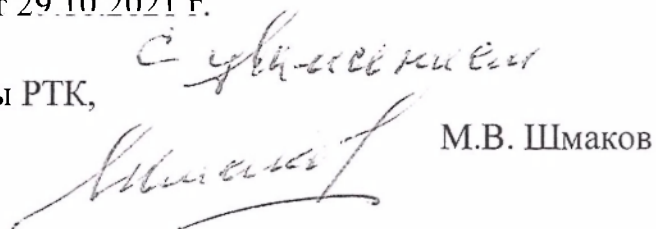 т 29.10.2021 г.
С уважением
ы РТК,
М.В. Шмаков